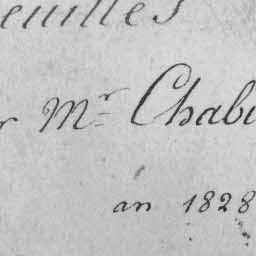 euilles
r Mr Chabi
an 1828